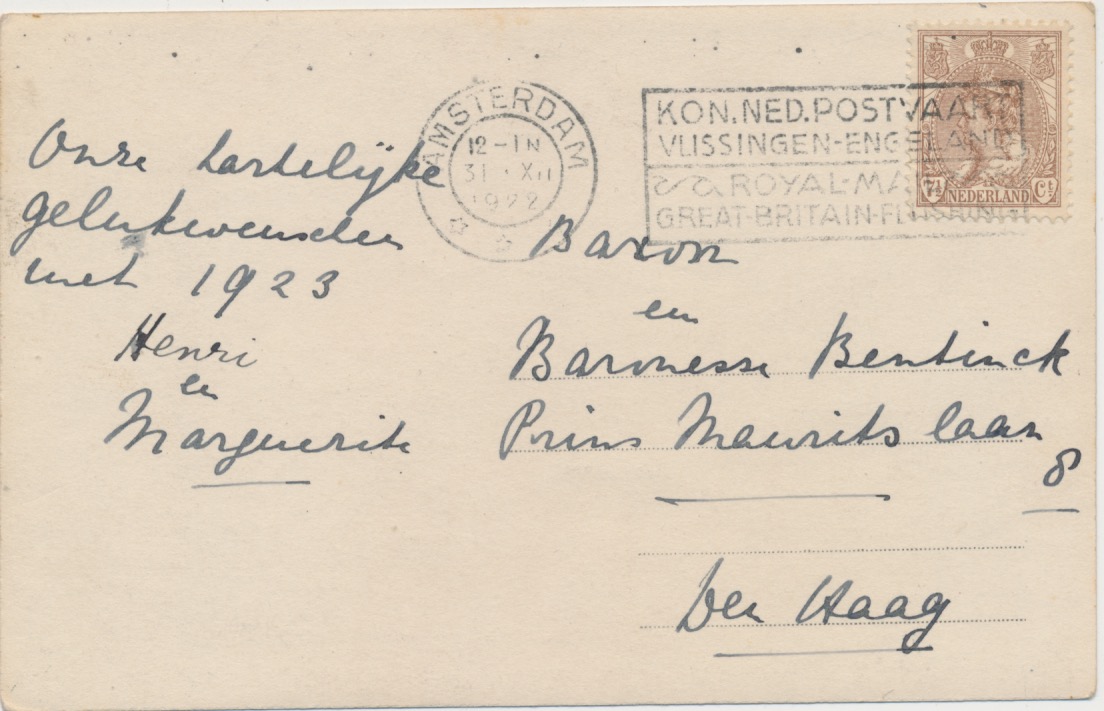 Onze hartelijke
gelukwenschen
met 1923
Henri
en
Marguerite
AMSTERDAM
12-1N
31 XII
1922
KON.NED.POSTVAAR
VLISSINGEN-ENGELAND
ROYAL-MA
GREAT-BRITAIN-FLUSHING
7½ NEDERLAND Ct
Baron
en
Baronesse Bentinck
Prins Maurits laan
8
Den Haag